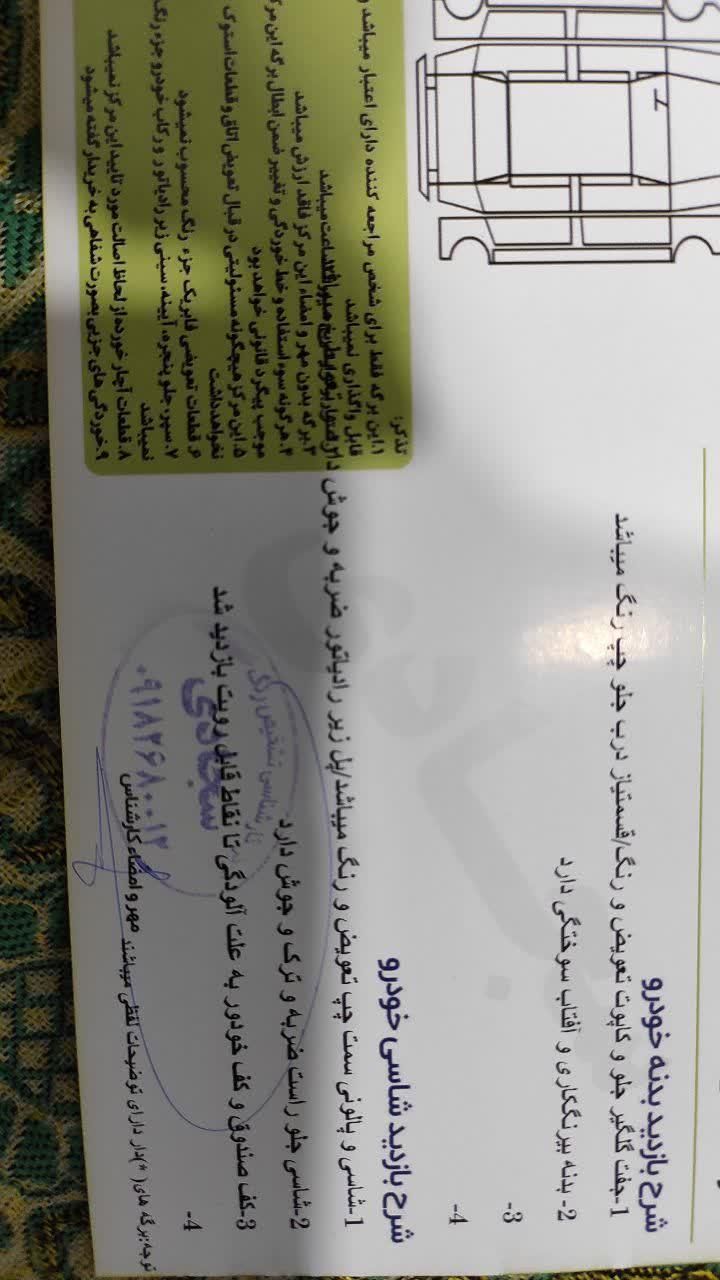 شرح بازدید بدنه خودرو
1-جفت گلگیر جلو و کاپوت تعویض و رنگ/قسمتیاز درب جلو چپ رنگ میباشد
2- بدنه بیرنگکاری و آفتاب سوختگی دارد
3-
4-
شرح بازدید شاسی خودرو
1-شاسی و پالونی سمت چپ تعویض و رنگ میباشد/پل زیر رادیاتور ضربه و جوش دا
2-شاسی جلو راست ضربه و ترک و جوش دارد
3-کف صندوق و کف خودور به علت آلودگی تا نقاط قابل رویت بازدید شد
4-
توجه:برگه های( *)دار دارای توضیحات لفظی میباشند
مهر و امضاء کارشناس
کارشناسی تشخیص رنگ
سجادی
۰۹۱۸۲۶۸۰۰۱۲
تذکر:
۱.این برگه فقط برای شخص مراجعه کننده دارای اعتبار میباشد و
قابل واگذاری نمیباشد
۳.برگه بدون مهر و امضاء این مرکز فاقد ارزش میباشد
۴.هرگونه سوء استفاده و خط خوردگی و تغییر ضمن ابطال برگه این مرک
موجب پیگرد قانونی خواهد بود
۵.این مرکز هیچگونه مسئولیتی در قبال تعویض اتاق و قطعات استوک
نخواهد داشت
۶. قطعات تعویضی فابریک جزء رنگ محسوب نمیشود
۷. سپر، جلو پنجره، آیینه، سینی زیر رادیاتور و رکاب خودرو جزء رنگ
نمیباشد
۸. قطعات آچار خورده از لحاظ اصالت مورد تایید این مرکز نمیباشد
۹.خوردگی های جزیی بصورت شفاهی به خریدار گفته میشود